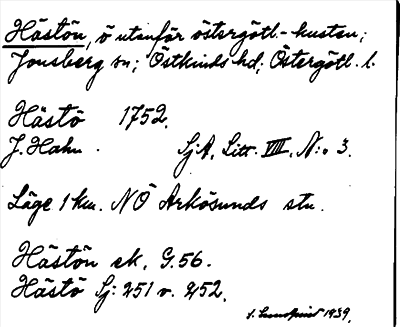 Hästön, ö utanför östergötl.-kusten;
Jonsberg sn; Östkinds hd; Östergötl. l.
Hästö 1752.
J. Hahn. SjA, Litt. VIII, N:o 3.
Läge 1 km. NÖ Arkösunds stn.
Hästön ek. G.56.
Hästö Sj: 251 v. 252.
S. Lundqvist 1939.